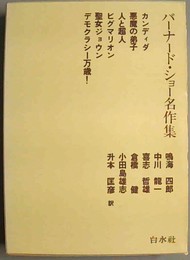 バーナード・ショー名作集
カンディダ
悪魔の弟子
人と超人
ピグマリオン
聖女ジョウン
デモクラシー万歳！
鳴海 四郎
中川 龍一
喜志 哲雄
倉橋 健
小田島雄志
升本 匡彦 訳
白水社